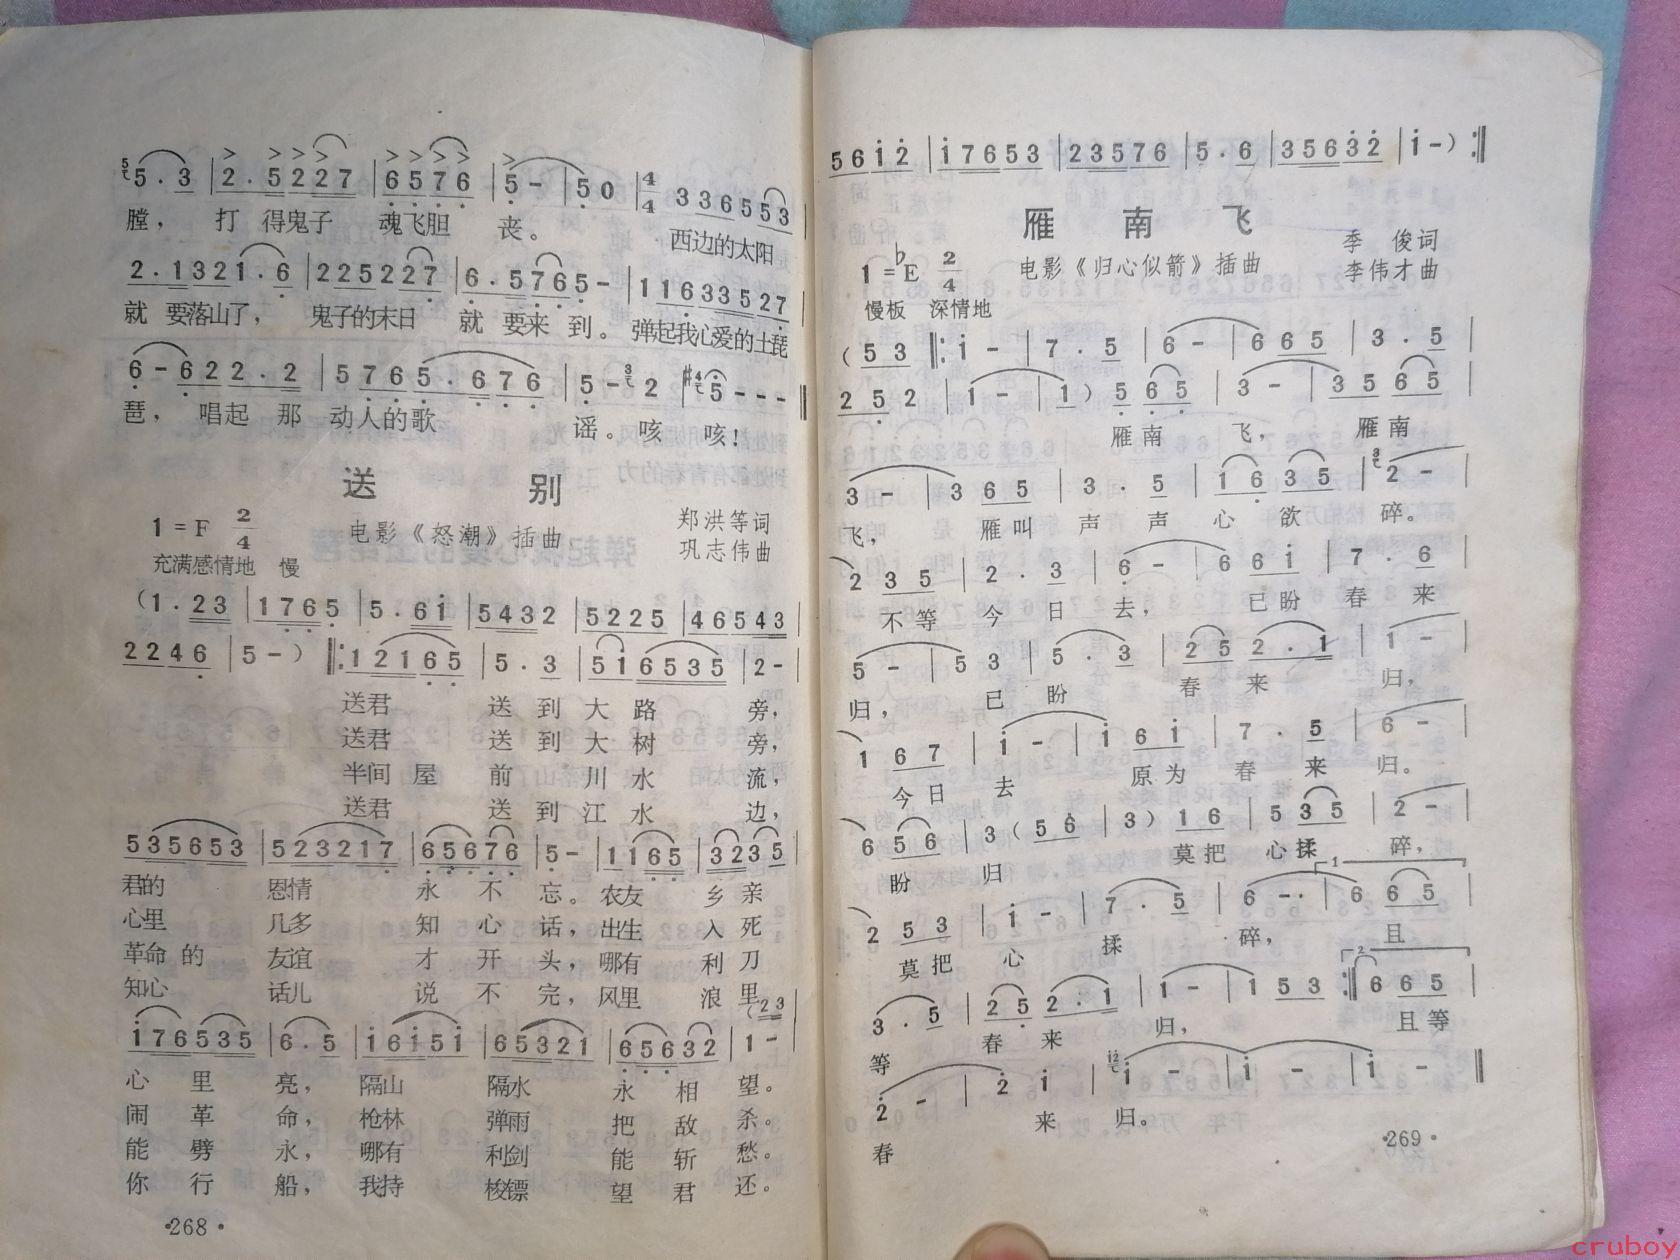 膛， 打 得鬼子 魂飞胆 丧。 西边的太阳
就 要落山了， 鬼子的末日 就 要来 到。 弹起我心爱的土琵
琶， 唱起 那 动人的歌 谣。咳 咳！
送 别
1=F 2/4 电影《怒潮》插曲 郑洪等词
巩志伟曲
充满感情地 慢
(1·23 | 1765 | 5·61 | 5432 | 5225 | 46543
2246 | 5-) ‖: 12165 | 5·3 | 516535 | 2-
送君 送 到 大 路 旁，
送君 送 到 大 树 旁，
半间 屋 前 川 水 流，
送君 送 到 江 水 边，
君的 恩情 永 不 忘。农友 乡 亲
心里 几多 知 心 话，出生 入 死
革命 的 友谊 才 开 头，哪有 利 刀
知心 话儿 说 不 完，风里 浪 里
心 里 亮， 隔山 隔水 永 相 望。
闹 革 命， 枪林 弹雨 把 敌 杀。
能 劈 永， 哪有 利剑 能 斩 愁。
你 行 船， 我持 梭镖 望 君 还。
·268·
5612 | 17653 | 23576 | 5·6 | 35632 | 1-) :‖
雁 南 飞
1=♭E 2/4 电影《归心似箭》插曲 李 俊词
李伟才曲
慢板 深情地
(53 ‖: 1- | 7·5 | 6- | 665 | 3·5 |
252 | 1- | 1) 565 | 3- | 3565 |
雁南 飞， 雁南
3- | 365 | 3·5 | 1635 | 2- |
飞， 雁叫 声 声 心 欲 碎。
235 | 2·3 | 6- | 661 | 7·6 |
不等 今 日 去， 已盼 春 来
5- | 53 | 5·3 | 252·1 | 1- |
归， 已 盼 春 来 归，
167 | 1- | 161 | 7·5 | 6- |
今日 去 原为 春 来 归。
656 | 3(56 | 3)16 | 535 | 2- |
盼 归 莫把 心揉 碎，
253 | 1- | 7·5 | 6-· | 665 |
莫把 心 揉 碎， 且
3·5 | 252·1 | 1- | 153 :‖ 665 |
等 春 来 归， 且等
2- | 21 | 1- | 1- | 1- ‖
春 来 归。
·269·
cruboy